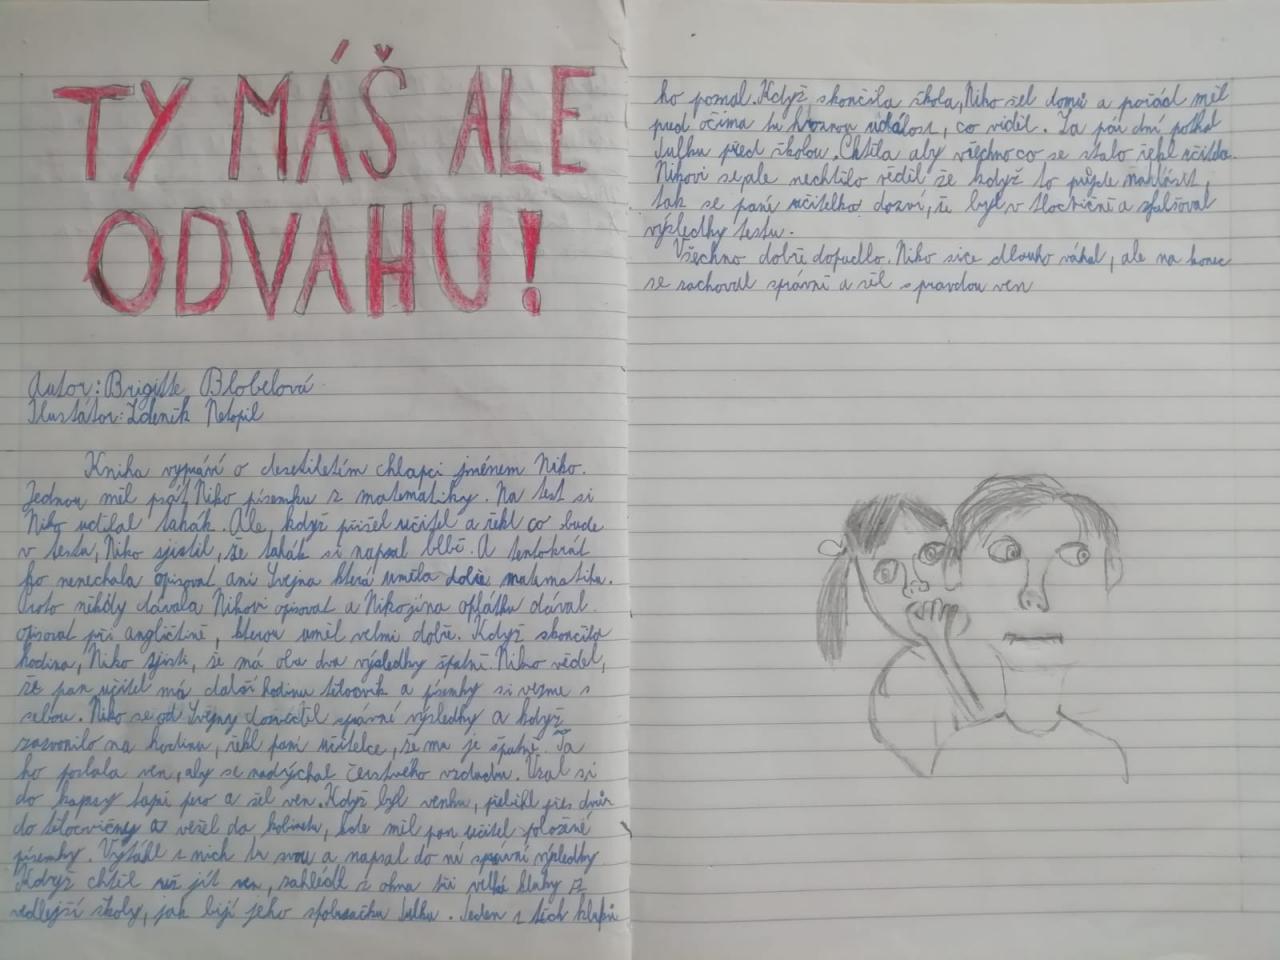 TY MÁŠ ALE
ODVAHU!
Autor: Brigitte Blobelová
Ilustátor: Zdeněk Netopil
Kniha vypráví o desetiletím chlapci jménem Niko.
Jednou měl psát Niko písemku z matematiky. Na test si
Niko udělal tahák. Ale, když přišel učitel a řekl co bude
v testu, Niko zjistil, že tahák si napsal blbě. A tentokrát
ho nenechala opisovat ani Svejna která uměla dobře matematiku.
Proto někdy dávala Nikovi opisovat a Niko jí na oplátku dával
opisovat při angličtině, kterou uměl velmi dobře. Když skončila
hodina, Niko zjisti, že má oba dva výsledky špatně. Niko věděl,
že pan učitel má další hodinu tělocvik a písemky si vezme s
sebou. Niko se od Svejny dozvěděl správné výsledky a když
zazvonilo na hodinu, řekl paní učitelce, že mu je špatně. Ta
ho poslala ven, aby se nadýchal čerstvého vzduchu. Vzal si
do kapsy pero a šel ven. Když byl venku, přeběhl přes dvůr
do tělocvičny a vešel do kabinetu, kde měl pan učitel položené
písemky. Vytáhl z nich tu svou a napsal do ní správné výsledky
Když chtěl už jít ven, zahlédl z okna tři velké kluky z
vedlejší školy, jak bijí jeho spolužačku Julku. Jeden z těch kluků
ho poznal. Když skončila škola, Niko šel domů a pořád měl
před očima tu hroznou událost, co viděl. Za pár dní potkal
Julku před školou. Chtěla aby všechno co se stalo řekl učiteli.
Nikovi se ale nechtělo věděl že když to půjde nahlásit,
tak se paní učitelka dozví, že byl v tělocvičně a zfalšoval
výsledky testu.
Všechno dobře dopadlo. Niko sice dlouho váhal, ale na konec
se zachoval správně a šel s pravdou ven